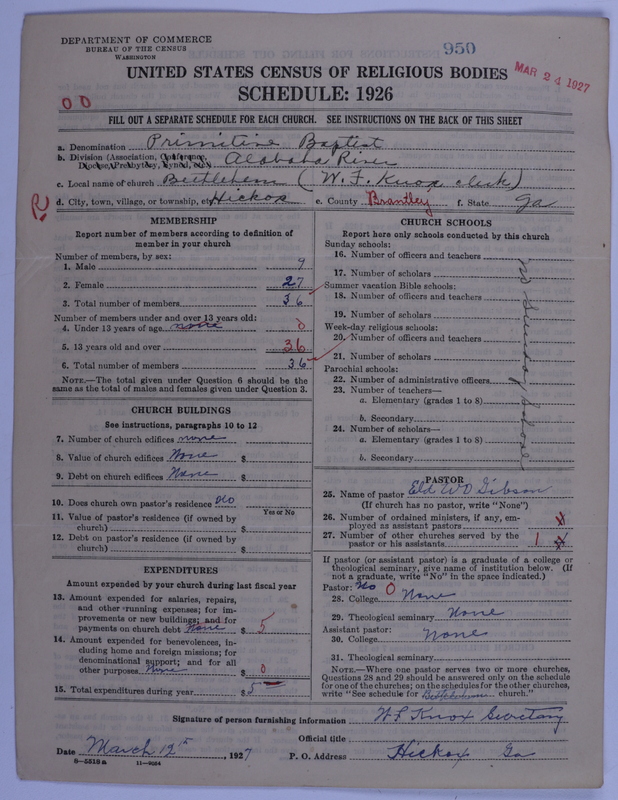 DEPARTMENT OF COMMERCE
BUREAU OF THE CENSUS
WASHINGTON
950
MAR 24 1927
UNITED STATES CENSUS OF RELIGIOUS BODIES
SCHEDULE: 1926
00
FILL OUT A SEPARATE SCHEDULE FOR EACH CHURCH. SEE INSTRUCTIONS ON THE BACK OF THIS SHEET
a. Denomination Primitive Baptist
b. Division (Association, Conference, Diocese, Presbytery, Synod, etc.) Alabaha River
c. Local name of church Bethlehem (W. F. Knox clerk)
R
d. City, town, village, or township, etc. Hickox e. County Brantley f. State Ga
MEMBERSHIP
Report number of members according to definition of
member in your church
Number of members, by sex:
1. Male 9
2. Female 27
3. Total number of members 36
Number of members under and over 13 years old:
4. Under 13 years of age none 0
5. 13 years old and over 36
6. Total number of members 36
NOTE.—The total given under Question 6 should be the
same as the total of males and females given under Question 3.
CHURCH BUILDINGS
See instructions, paragraphs 10 to 12
7. Number of church edifices none
8. Value of church edifices None $
9. Debt on church edifices None $
10. Does church own pastor's residence No
Yes or No
11. Value of pastor's residence (if owned by
church) $
12. Debt on pastor's residence (if owned by
church) $
EXPENDITURES
Amount expended by your church during last fiscal year
13. Amount expended for salaries, repairs,
and other running expenses; for im-
provements or new buildings; and for
payments on church debt None $ 5
14. Amount expended for benevolences, in-
cluding home and foreign missions; for
denominational support; and for all
other purposes None $ 0
15. Total expenditures during year $ 5
CHURCH SCHOOLS
Report here only schools conducted by this church
Sunday schools:
16. Number of officers and teachers
17. Number of scholars
Summer vacation Bible schools:
18. Number of officers and teachers
19. Number of scholars
Week-day religious schools:
20. Number of officers and teachers
21. Number of scholars
Parochial schools:
22. Number of administrative officers
23. Number of teachers—
a. Elementary (grades 1 to 8)
b. Secondary
24. Number of scholars—
a. Elementary (grades 1 to 8)
b. Secondary
no Sunday School
PASTOR
25. Name of pastor Eld W O Gibson
(If church has no pastor, write "None")
26. Number of ordained ministers, if any, em-
ployed as assistant pastors
27. Number of other churches served by the
pastor or his assistants 1
If pastor (or assistant pastor) is a graduate of a college or
theological seminary, give name of institution below. (If
not a graduate, write "No" in the space indicated.)
Pastor: No 0
28. College None
29. Theological seminary None
Assistant pastor:
30. College None
31. Theological seminary
NOTE.—Where one pastor serves two or more churches,
Questions 28 and 29 should be answered only on the schedule
for one of the churches; on the schedules for the other churches,
write "See schedule for Bethlehem church."
Signature of person furnishing information W F Knox Secretary
Official title
Date March 12th, 1927 P. O. Address Hickox Ga
8—5518a 11—9054